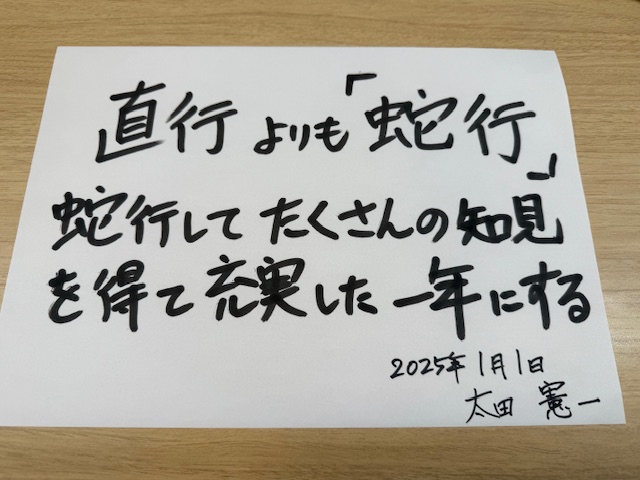 直行よりも「蛇行」
蛇行してたくさんの知見
を得て充実した一年にする
2025年1月1日
太田 憲一